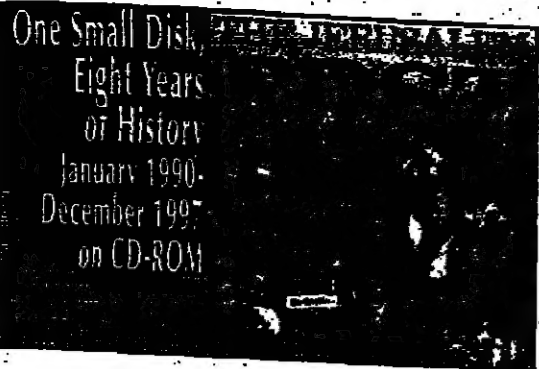 One Small Disk,
Eight Years
of History
January 1990-
December 1997
on CD-ROM